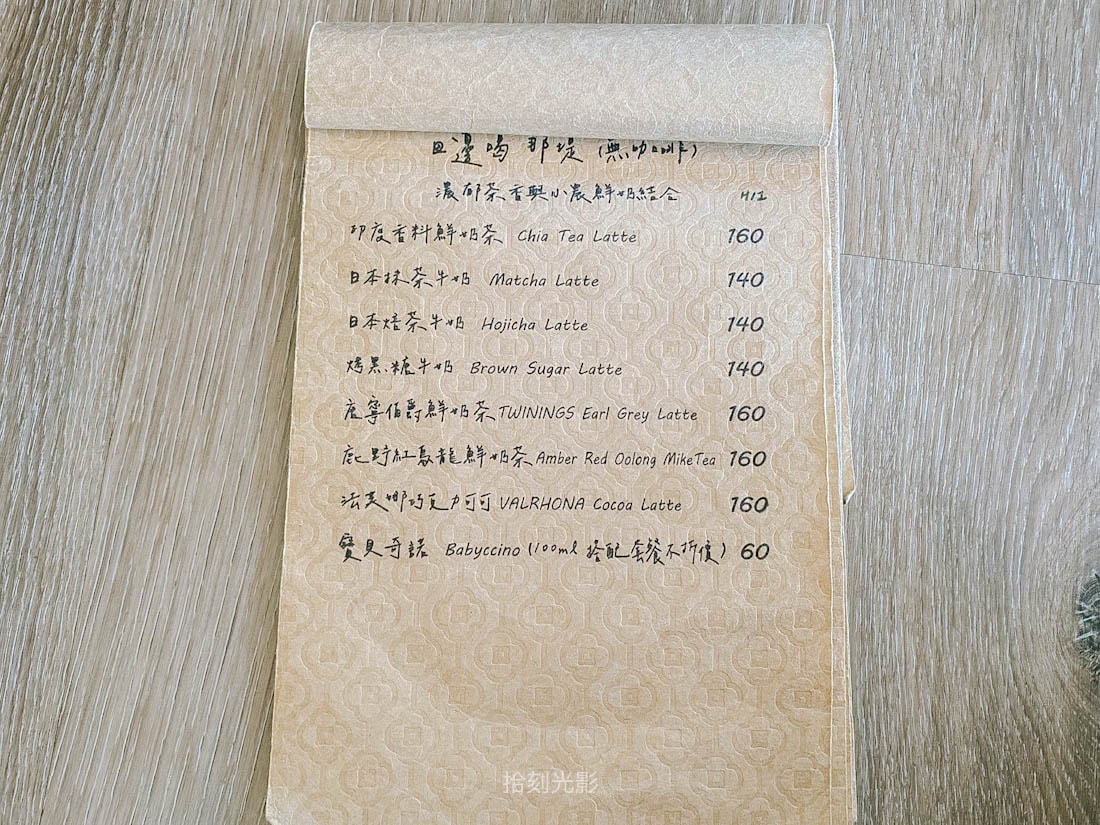 邊喝 那堤 (無咖啡)
濃郁茶香與小農鮮奶結合 H/I
印度香料鮮奶茶 Chia Tea Latte 160
日本抹茶牛奶 Matcha Latte 140
日本焙茶牛奶 Hojicha Latte 140
烤黑糖牛奶 Brown Sugar Latte 140
唐寧伯爵鮮奶茶 TWININGS Earl Grey Latte 160
鹿野紅烏龍鮮奶茶 Amber Red Oolong MikeTea 160
法芙娜巧克力可可 VALRHONA Cocoa Latte 160
寶貝奇諾 Babyccino (100ml 搭配套餐不折價) 60
拾刻光影